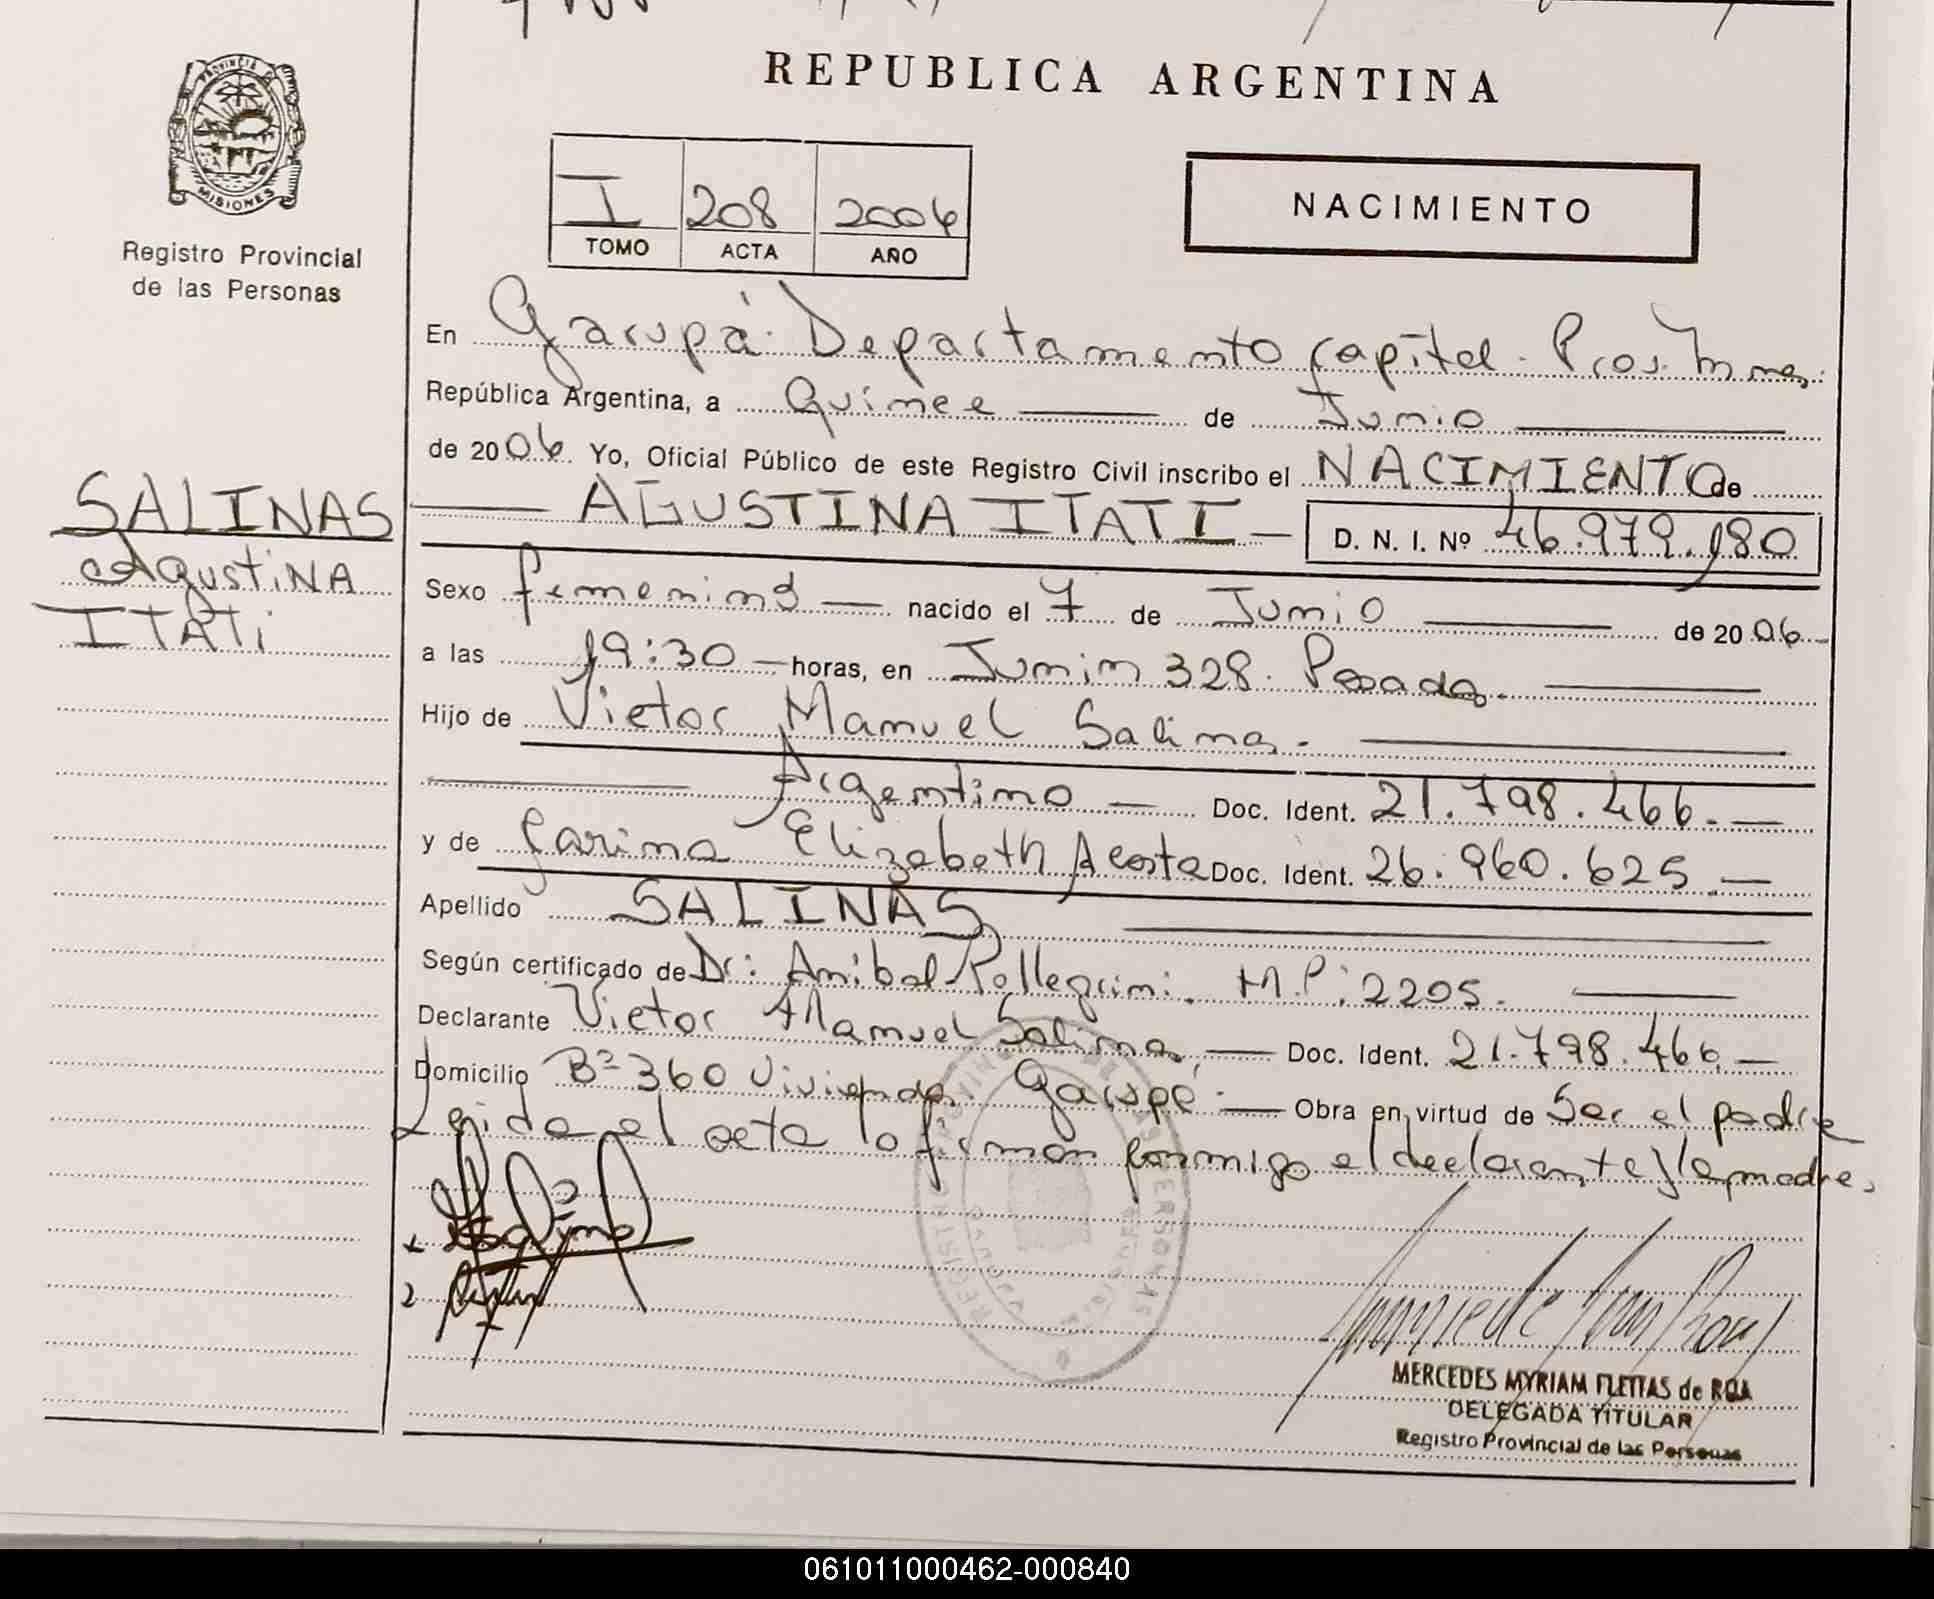 REPUBLICA ARGENTINA
PROVINCIA DE
MISIONES
Registro Provincial
de las Personas
I 208 2006
TOMO ACTA AÑO
NACIMIENTO
En Garupá Departamento Capital. Prov. Mnes.
República Argentina, a Quince de Junio
de 2006. Yo, Oficial Público de este Registro Civil inscribo el NACIMIENTO de
SALINAS
Agustina
ITATI
AGUSTINA ITATI D. N. I. Nº 46.979.180
Sexo femenino nacido el 7 de Junio de 2006
a las 19:30 horas, en Junin 328. Posadas.
Hijo de Victor Manuel Salinas.
Argentino Doc. Ident. 21.798.466.
y de Carina Elizabeth Acosta Doc. Ident. 26.960.625.
Apellido SALINAS
Según certificado de Dr: Anibal Pellegrini. M.P: 2205.
Declarante Victor Manuel Salinas, Doc. Ident. 21.798.466.
Domicilio Bº 360 Viviendas. Garupá. Obra en virtud de Ser el padre
Leida el acta lo firman conmigo el declarante y la madre.
1
2
MERCEDES MYRIAM FLEITAS de ROA
DELEGADA TITULAR
Registro Provincial de las Personas
061011000462-000840